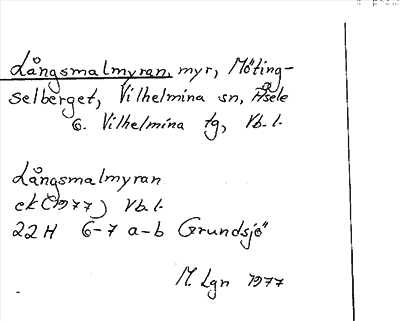 Långsmalmyran, myr, Möting-
selberget, Vilhelmina sn, Åsele
6. Vilhelmina tg, Vb. l.
Långsmalmyran
ek (1977) Vb. l.
22H 6-7 a-b Grundsjö
M. Lgn 1977